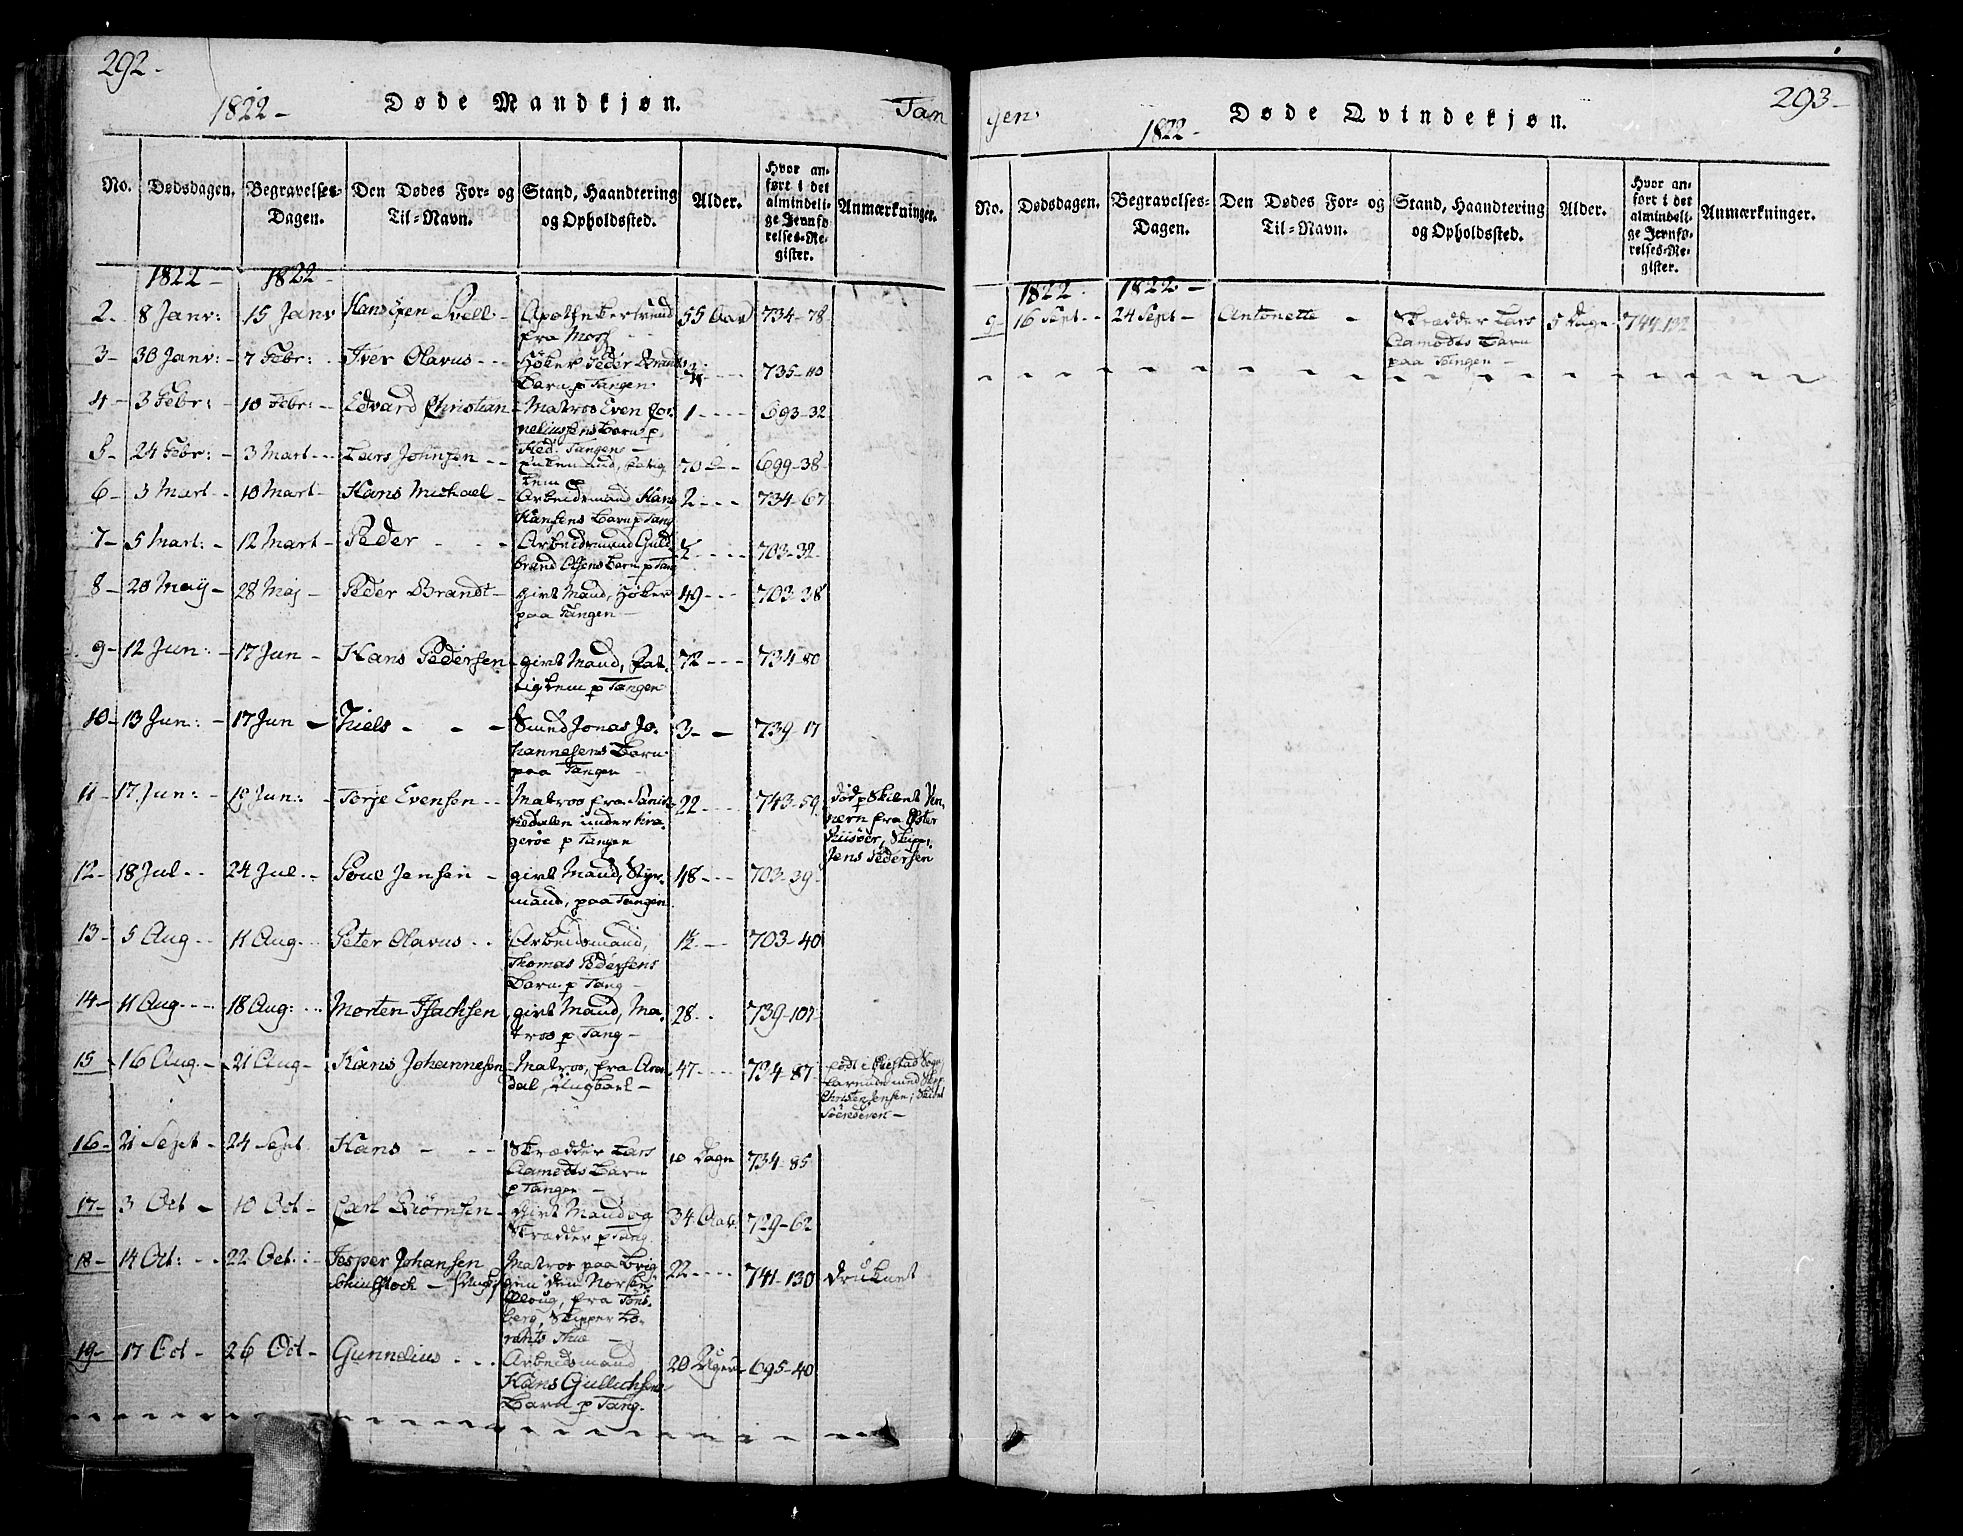 292-
1822- Døde Mandkjøn. Tan
No. Dødsdagen. Begravelses-Dagen. Den Dødes For- og Til-Navn. Stand, Haandtering og Opholdssted. Alder. Hvor anført i det almindelige Jevnførelses-Register. Anmærkninger.
1822- 1822-
2- 8 Janv: 15 Janv Hans Svell- Apothekersvend 55 Aar 734-78
fra Moss
3- 30 Janv:- 7 Febr: Iver Olavus - - - Høker Peder Brandts 735-110
Barn p Tangen
4- 3 Febr:- 10 Febr:- Edvard Christian- Matros Even Cor- 1 - - - 693-32
neliussens Barn p
Tangen-
5- 24 Febr:- 3 Mart- - Lars Johnsen - - Enkemand, Fattig- 70 699-38
lem
6- 3 Mart- 10 Mart- Hans Michael- Arbeidsmand Hans 2 - - - 734-67
Hansens Barn p Tang
7- 5 Mart:- 12 Mart- Peder - - - Arbeidsmand Guld- ½ - - - 703-32-
brand Olsens Barn p Tang
8- 20 May- 28 Maj- Peder Brandt- givt Mand, Høker 49 - - 703-38
paa Tangen-
9- 12 Jun:- 17 Jun- Hans Pedersen- givt Mand, Fat- 72 - - - 734-80
tiglem p Tangen
10- 13 Jun:- 17 Jun- Niels - - - Smed Jonas Jo- 3 - - 739-17
hannesens Barn
paa Tangen-
11- 17 Jun:- 19 Jun:- Torje Evensen - - Matros fra Sanik- 22 - - - 743-59 død p Skibet
kedalen under Kra- fra Øster
gerøe p Tangen Riisøer, Skipp:
Jens Pedersen
12- 18 Jul - - 24 Jul - - Poul Jensen - givt Mand, Styr- 48 - - - 703-39-
mand, paa Tangen
13- 5 Aug - - 11 Aug - - Peter Olavus - - Arbeidsmand, 1½ - - 703-40
Thomas Pedersens
Barn p Tang-
14- 11 Aug - - - 18 Aug: - - Morten Isachsen givt Mand, Ma- 28 - - 739-107
tros p Tang-
15- 16 Aug- 21 Aug- Hans Johannesen- Matros, fra Aren- 47 - - - 734-87 født i Øiestad Sogn,
dal, Ungkarl- farende med Skip.
16- 21 Sept- 24 Sept Hans - - - Skrædder Lars 10 Dage 734-85
Aamodts Barn
p Tangen-
17- 3 Oct- 10 Oct- Carl Biørnsen- givt Mand og 34 Aar 729-62
Skrædder p Tang
18- 14 Oct: - - 22 Oct: - Jesper Johansen Matros paa Brig- 22 - - - 741-130 druknet
gen den Norske
Ploug, fra Tøns-
berg, Skipper Lo-
rents Thue -
19- 17 Oct- 26 Oct- Gunnelius - - - Arbeidsmand 20 Uger- 695-40
Hans Gullichsens
Barn p Tang.
gen 1822- Døde Qvindekjøn. 293-
No. Dødsdagen. Begravelses-Dagen. Den Dødes For- og Til-Navn. Stand, Haandtering og Opholdssted. Alder. Hvor anført i det almindelige Jevnførelses-Register. Anmærkninger.
1822- 1822-
9- 16 Sept - - 24 Sept- Antonette - Skrædder Lars 5 Dage 744-132
Aamodts Barn
paa Tangen-